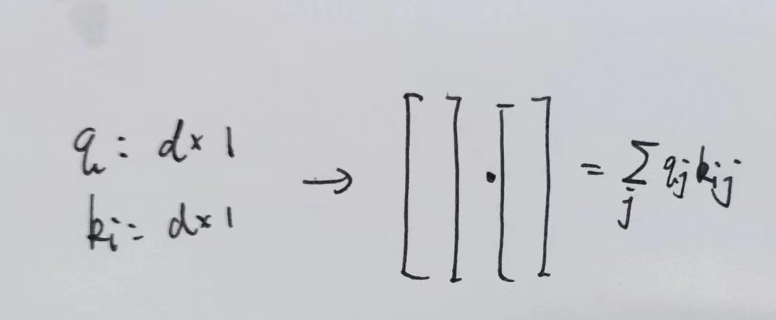 q: d×1
ki: d×1
→ [ ] · [ ] = ∑j qj kij